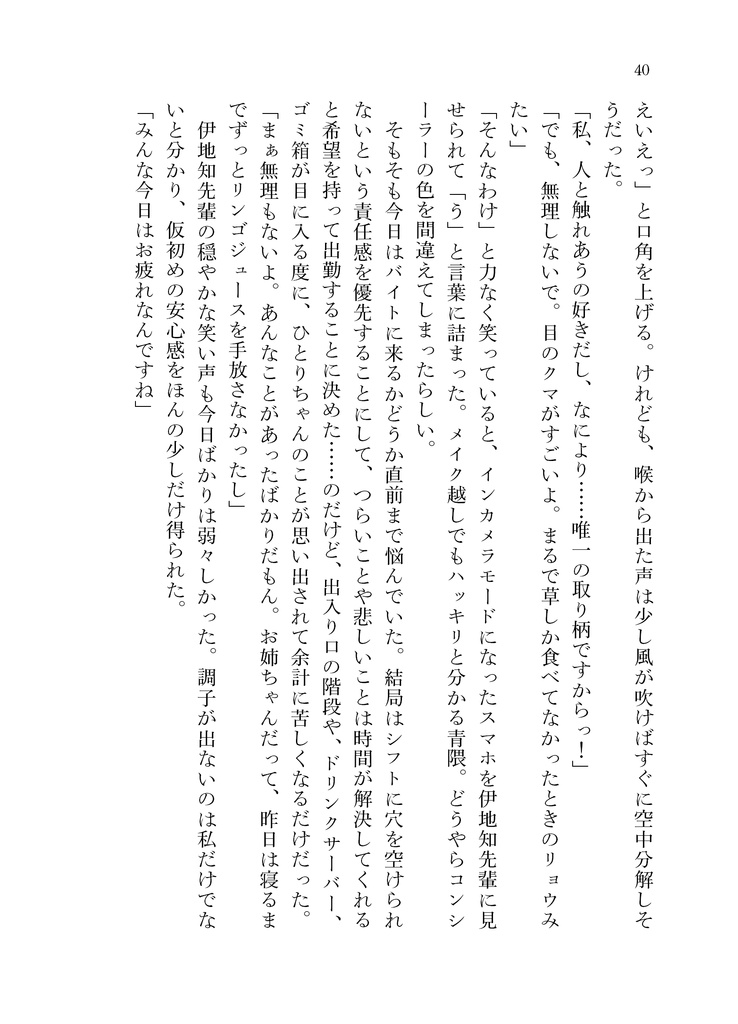 40
えいえっ」と口角を上げる。けれども、喉から出た声は少し風が吹けばすぐに空中分解しそ
うだった。
「私、人と触れあうの好きだし、なにより……唯一の取り柄ですからっ！」
「でも、無理しないで。目のクマがすごいよ。まるで草しか食べてなかったときのリョウみ
たい」
「そんなわけ」と力なく笑っていると、インカメラモードになったスマホを伊地知先輩に見
せられて「う」と言葉に詰まった。メイク越しでもハッキリと分かる青隈。どうやらコンシ
ーラーの色を間違えてしまったらしい。
そもそも今日はバイトに来るかどうか直前まで悩んでいた。結局はシフトに穴を空けられ
ないという責任感を優先することにして、つらいことや悲しいことは時間が解決してくれる
と希望を持って出勤することに決めた……のだけど、出入り口の階段や、ドリンクサーバー、
ゴミ箱が目に入る度に、ひとりちゃんのことが思い出されて余計に苦しくなるだけだった。
「まぁ無理もないよ。あんなことがあったばかりだもん。お姉ちゃんだって、昨日は寝るま
でずっとリンゴジュースを手放さなかったし」
伊地知先輩の穏やかな笑い声も今日ばかりは弱々しかった。調子が出ないのは私だけでな
いと分かり、仮初めの安心感をほんの少しだけ得られた。
「みんな今日はお疲れなんですね」